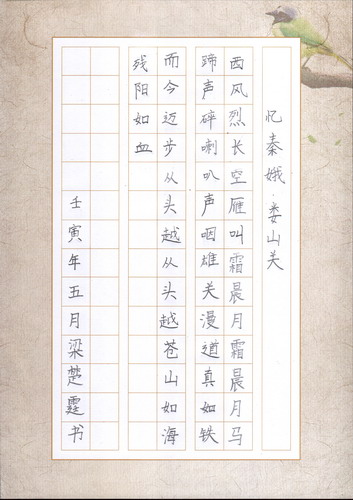 忆秦娥·娄山关
西风烈长空雁叫霜晨月霜晨月马
蹄声碎喇叭声咽雄关漫道真如铁
而今迈步从头越从头越苍山如海
残阳如血
壬寅年五月梁楚霆书